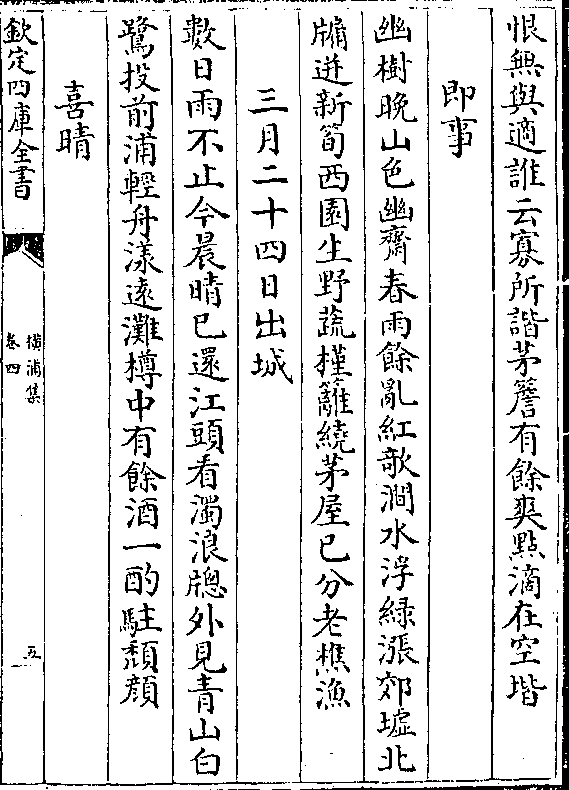 恨無與適誰云寡所諧茅簷有餘爽點滴在空堦
即事
幽樹晚山色幽齋春雨餘亂紅欹澗水浮緑漲郊墟北
牖迸新筍西園生野蔬槿籬繞茅屋已分老樵漁
三月二十四日出城
數日雨不止今晨晴已還江頭看濁浪牕外見青山白
鷺投前浦輕舟漾遠灘樽中有餘酒一酌駐頽顔
喜晴
欽定四庫全書
橫浦集
卷四
五